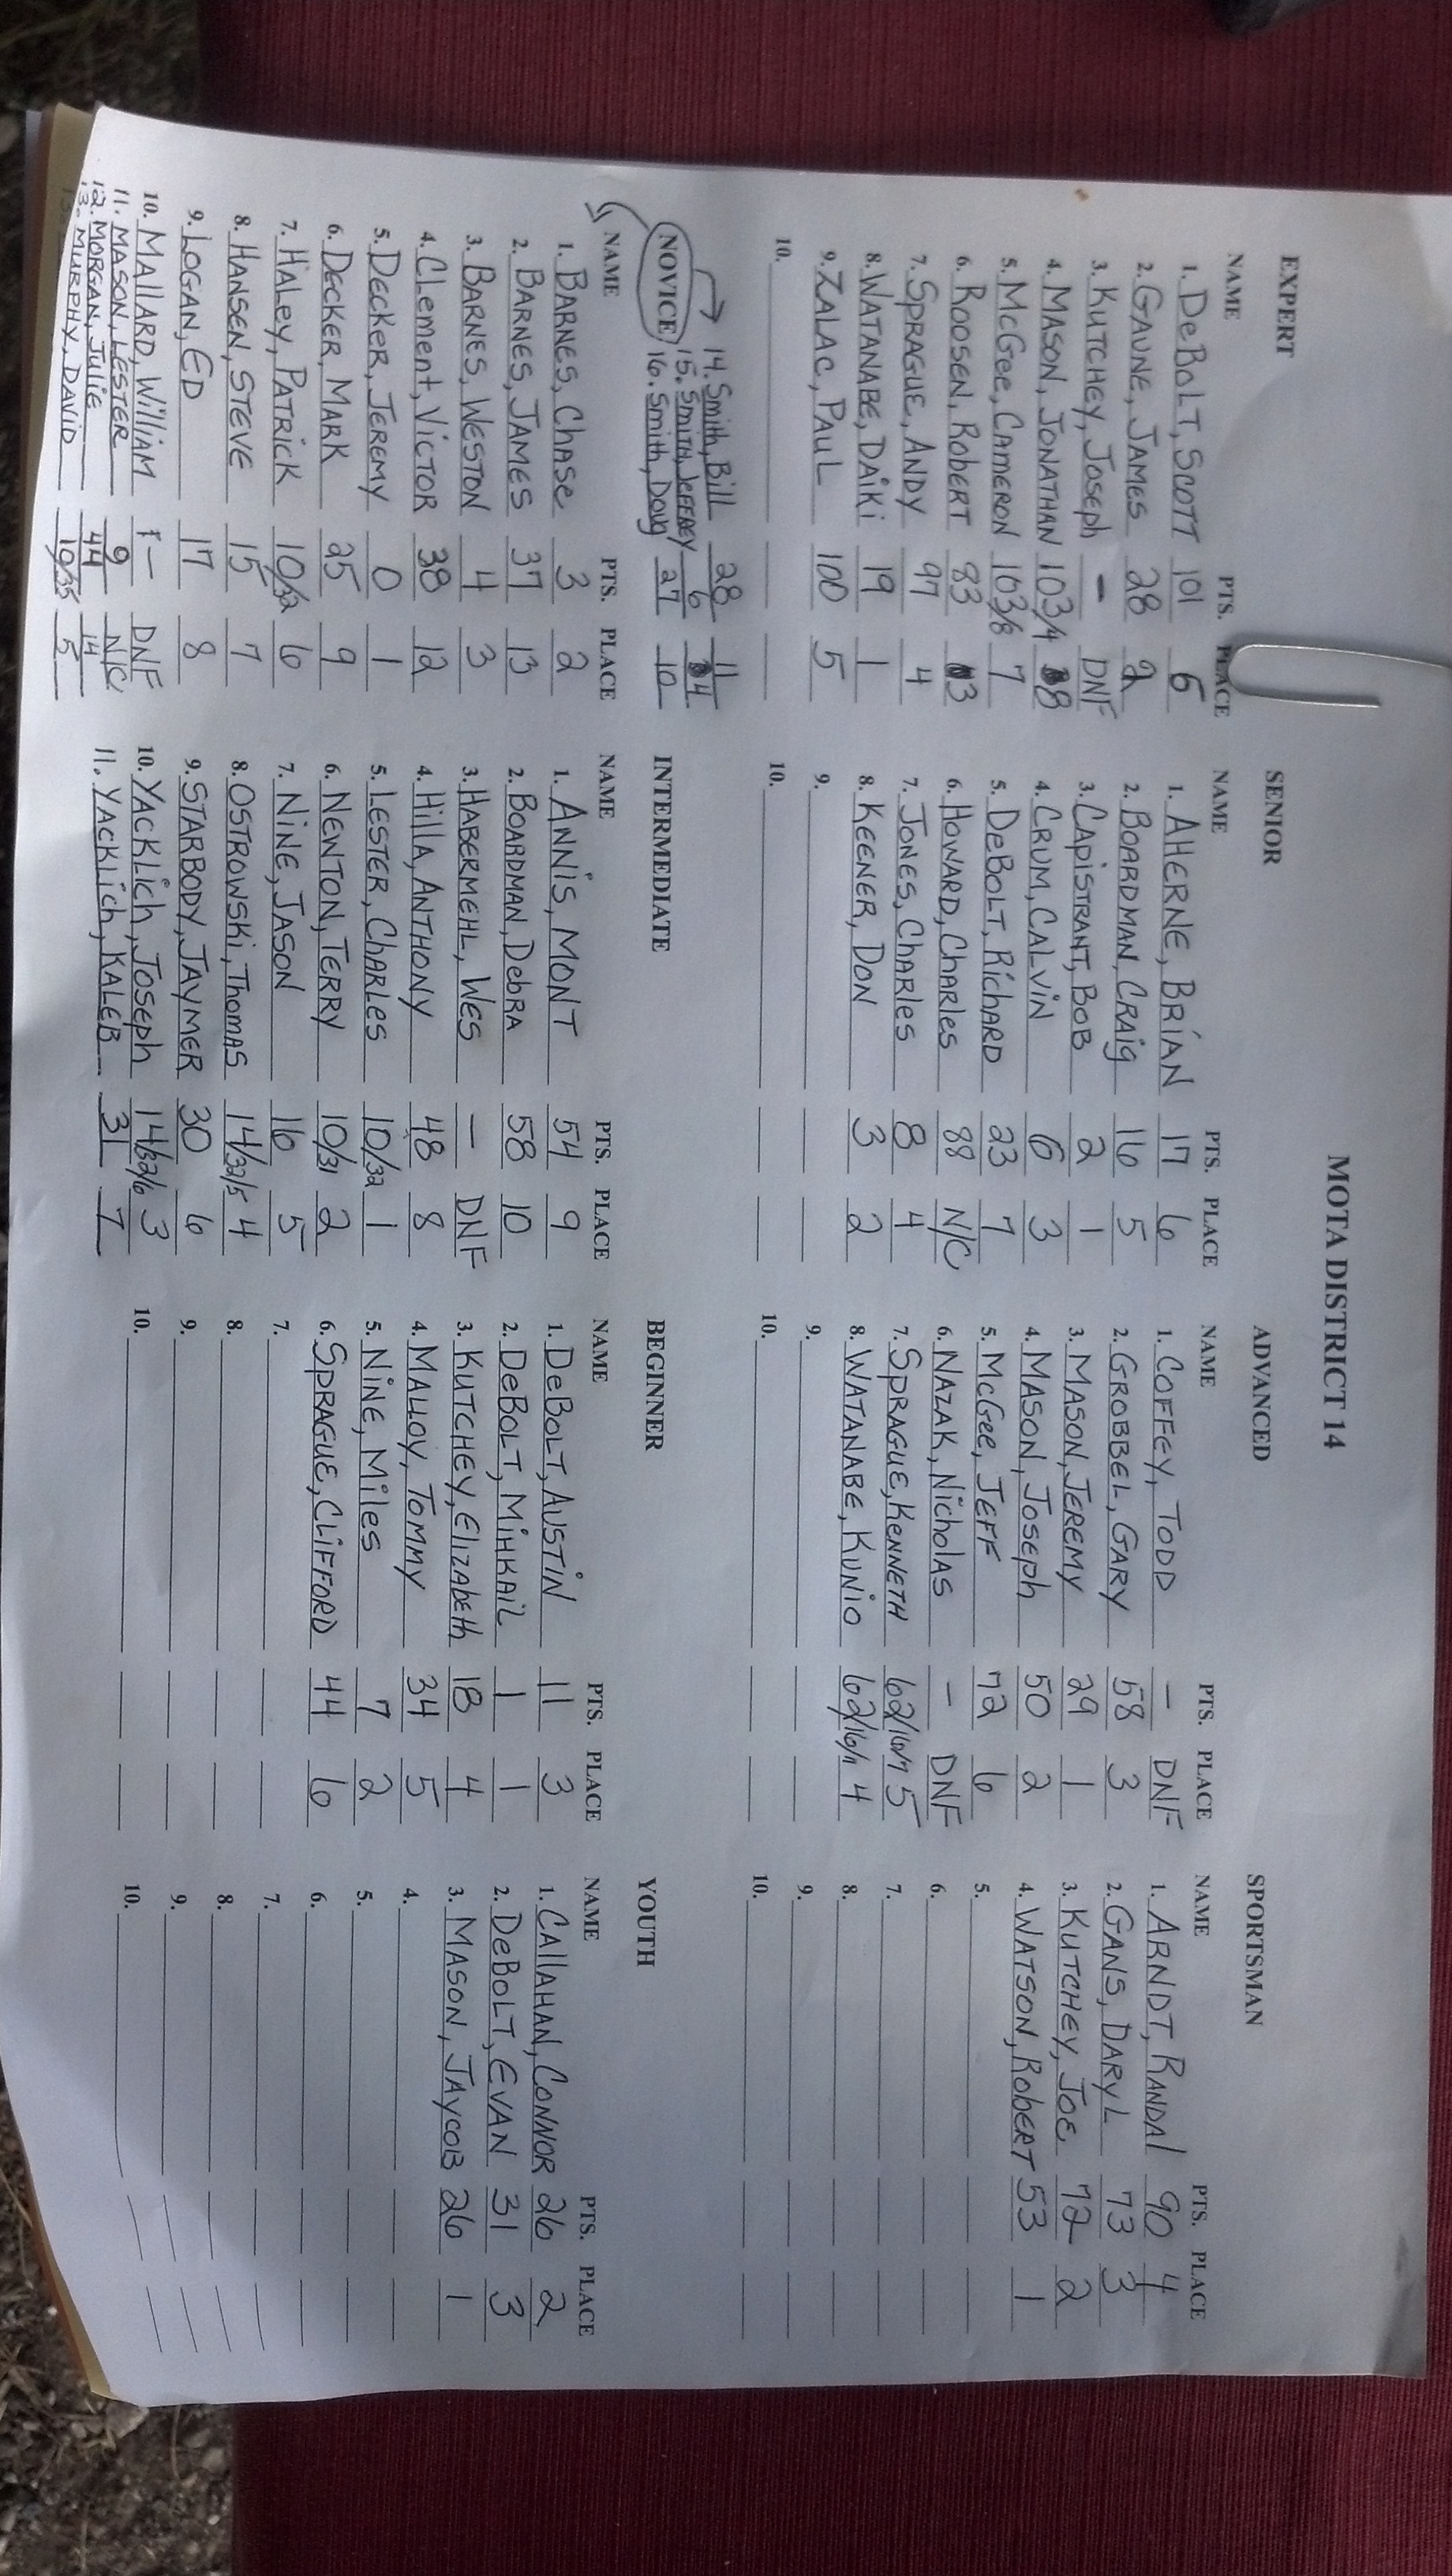 MOTA DISTRICT 14
EXPERT
NAME PTS. PLACE
1. DeBOLT, SCOTT 101 6
2. GAUNE, JAMES 28 2
3. KUTCHEY, Joseph — DNF
4. MASON, JONATHAN 103/4 8
5. McGee, CAMERON 103/8 7
6. ROOSEN, Robert 83 3
7. SPRAGUE, ANDY 97 4
8. WATANABE, DAiKi 19 1
9. ZALAC, PAUL 100 5
10.
SENIOR
NAME PTS. PLACE
1. AHERNE, BRIAN 17 6
2. BOARDMAN, CRAig 16 5
3. CApiSTRANT, BOB 2 1
4. CRUM, CALViN 6 3
5. DeBOLT, RiCHARD 23 7
6. HOWARD, Charles 88 N/C
7. JONES, Charles 8 4
8. KEENER, DON 3 2
9.
10.
ADVANCED
NAME PTS. PLACE
1. COFFEY, TODD — DNF
2. GROBBEL, GARY 58 3
3. MASON, JEREMY 29 1
4. MASON, Joseph 50 2
5. McGee, JEFF 72 6
6. NAZAK, Nicholas — DNF
7. SPRAGUE, KENNETH 62/16/7 5
8. WATANABE, KUNiO 62/16/11 4
9.
10.
SPORTSMAN
NAME PTS. PLACE
1. ARNDT, RANDAl 90 4
2. GANS, DARYL 73 3
3. KUTCHEY, JOE 72 2
4. WATSON, RobERT 53 1
5.
6.
7.
8.
9.
10.
NOVICE
14. Smith, Bill 28 11
15. SmiTH, JEFFREY 6 4
16. Smith, Doug 27 10
NAME PTS. PLACE
1. BARNES, Chase 3 2
2. BARNES, JAMES 37 13
3. BARNES, WESTON 4 3
4. Clement, VICTOR 38 12
5. DECKER, JEREMY 0 1
6. DECKER, MARK 25 9
7. HALEY, PATRICK 10/32 6
8. HANSEN, STEVE 15 7
9. LOGAN, ED 17 8
10. MALLARD, William — DNF
11. MASON, LESTER 9 N/C
12. MORGAN, JuliE 44 14
13. MURPHY, DAVID 10/35 5
INTERMEDIATE
NAME PTS. PLACE
1. ANNiS, MONT 54 9
2. BOARDMAN, DebRA 58 10
3. HABERMEHL, WES — DNF
4. Hilla, ANTHONY 48 8
5. LESTER, CHARles 10/32 1
6. NEWTON, TERRY 10/31 2
7. NiNE, JASON 16 5
8. OSTROWSKi, ThomAS 14/32/5 4
9. STARBODY, JAYMER 30 6
10. YACKLiCH, JOSEPh 14/32/6 3
11. YACKLiCH, KALEB 31 7
BEGINNER
NAME PTS. PLACE
1. DeBOLT, AUSTiN 11 3
2. DeBOLT, MiHKAiL 1 1
3. KUTCHEY, ElizABETH 18 4
4. MALLOY, TOMMY 34 5
5. NiNE, Miles 7 2
6. SPRAGUE, CLiFFORD 44 6
7.
8.
9.
10.
YOUTH
NAME PTS. PLACE
1. CAllAHAN, CONNOR 26 2
2. DeBOLT, EVAN 31 3
3. MASON, JAYCOB 26 1
4.
5.
6.
7.
8.
9.
10.